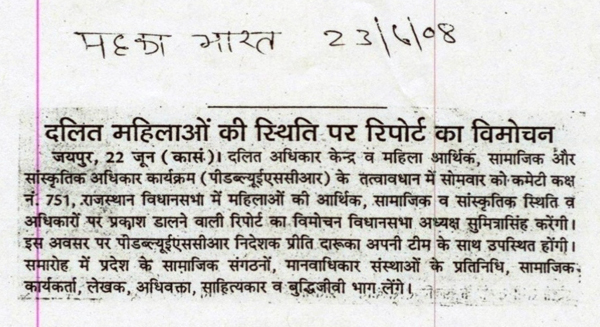 महका भारत 23/6/08
दलित महिलाओं की स्थिति पर रिपोर्ट का विमोचन
जयपुर, 22 जून (कासं.)। दलित अधिकार केन्द्र व महिला आर्थिक, सामाजिक और
सांस्कृतिक अधिकार कार्यक्रम (पीडब्ल्यूईएससीआर) के तत्वावधान में सोमवार को कमेटी कक्ष
नं. 751, राजस्थान विधानसभा में महिलाओं की आर्थिक, सामाजिक व सांस्कृतिक स्थिति व
अधिकारों पर प्रकाश डालने वाली रिपोर्ट का विमोचन विधानसभा अध्यक्ष सुमित्रासिंह करेंगी।
इस अवसर पर पीडब्ल्यूईएससीआर निदेशक प्रीति दारूका अपनी टीम के साथ उपस्थित होंगी।
समारोह में प्रदेश के सामाजिक संगठनों, मानवाधिकार संस्थाओं के प्रतिनिधि, सामाजिक
कार्यकर्ता, लेखक, अधिवक्ता, साहित्यकार व बुद्धिजीवी भाग लेंगे।